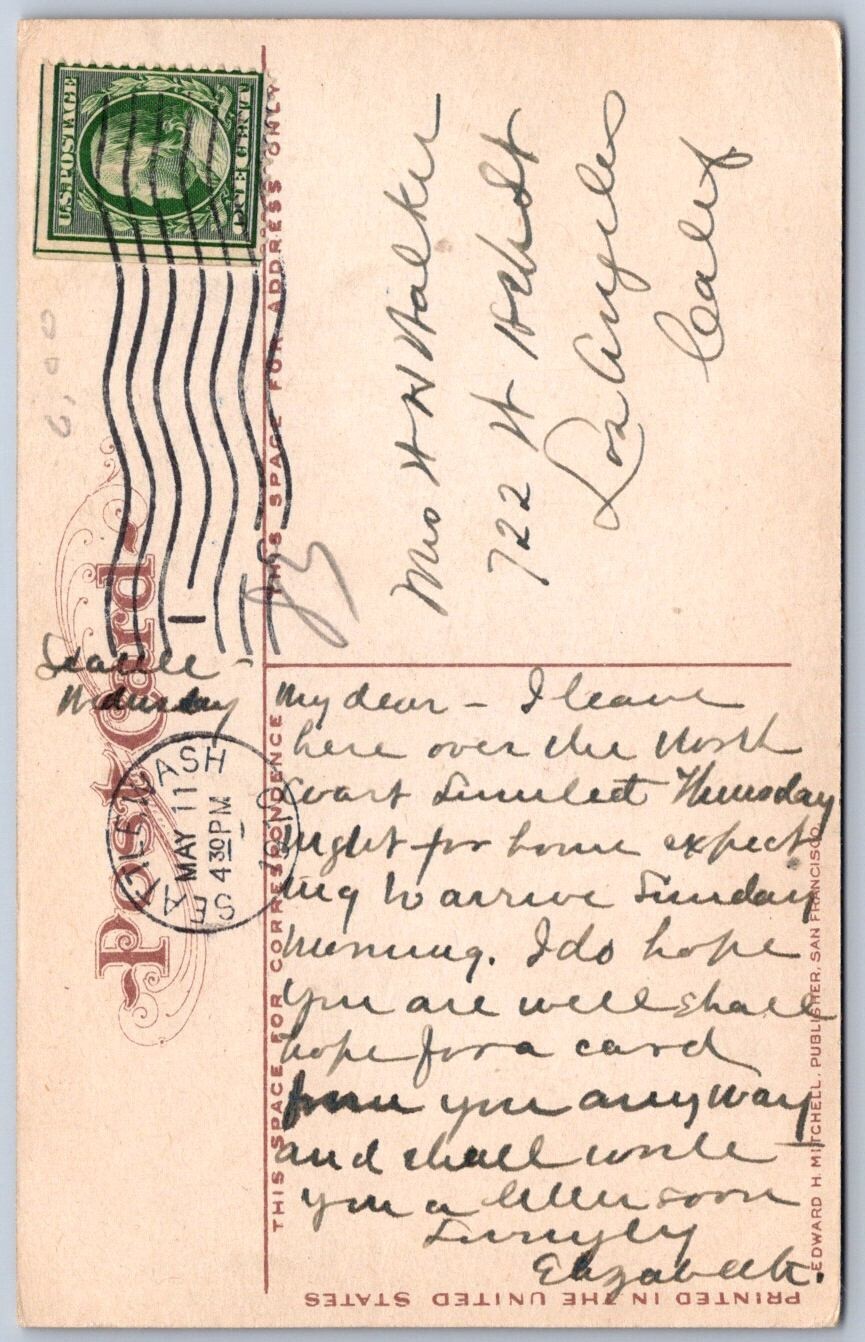 U.S. POSTAGE
ONE CENT
Post Card
THIS SPACE FOR ADDRESS ONLY
Mrs H W Walker
722 W St
Los Angeles
Calif
SEATTLE, WASH
MAY 11
4 30 PM
Seattle -
Wednesday
My dear - I leave
here over the North
Coast Limited Thursday
night for home expect
ing to arrive Sunday
morning. I do hope
you are well shall
hope for a card
from you anyway
and shall write
you a letter soon
Lovingly
Elizabeth.
THIS SPACE FOR CORRESPONDENCE
EDWARD H. MITCHELL, PUBLISHER, SAN FRANCISCO
PRINTED IN THE UNITED STATES